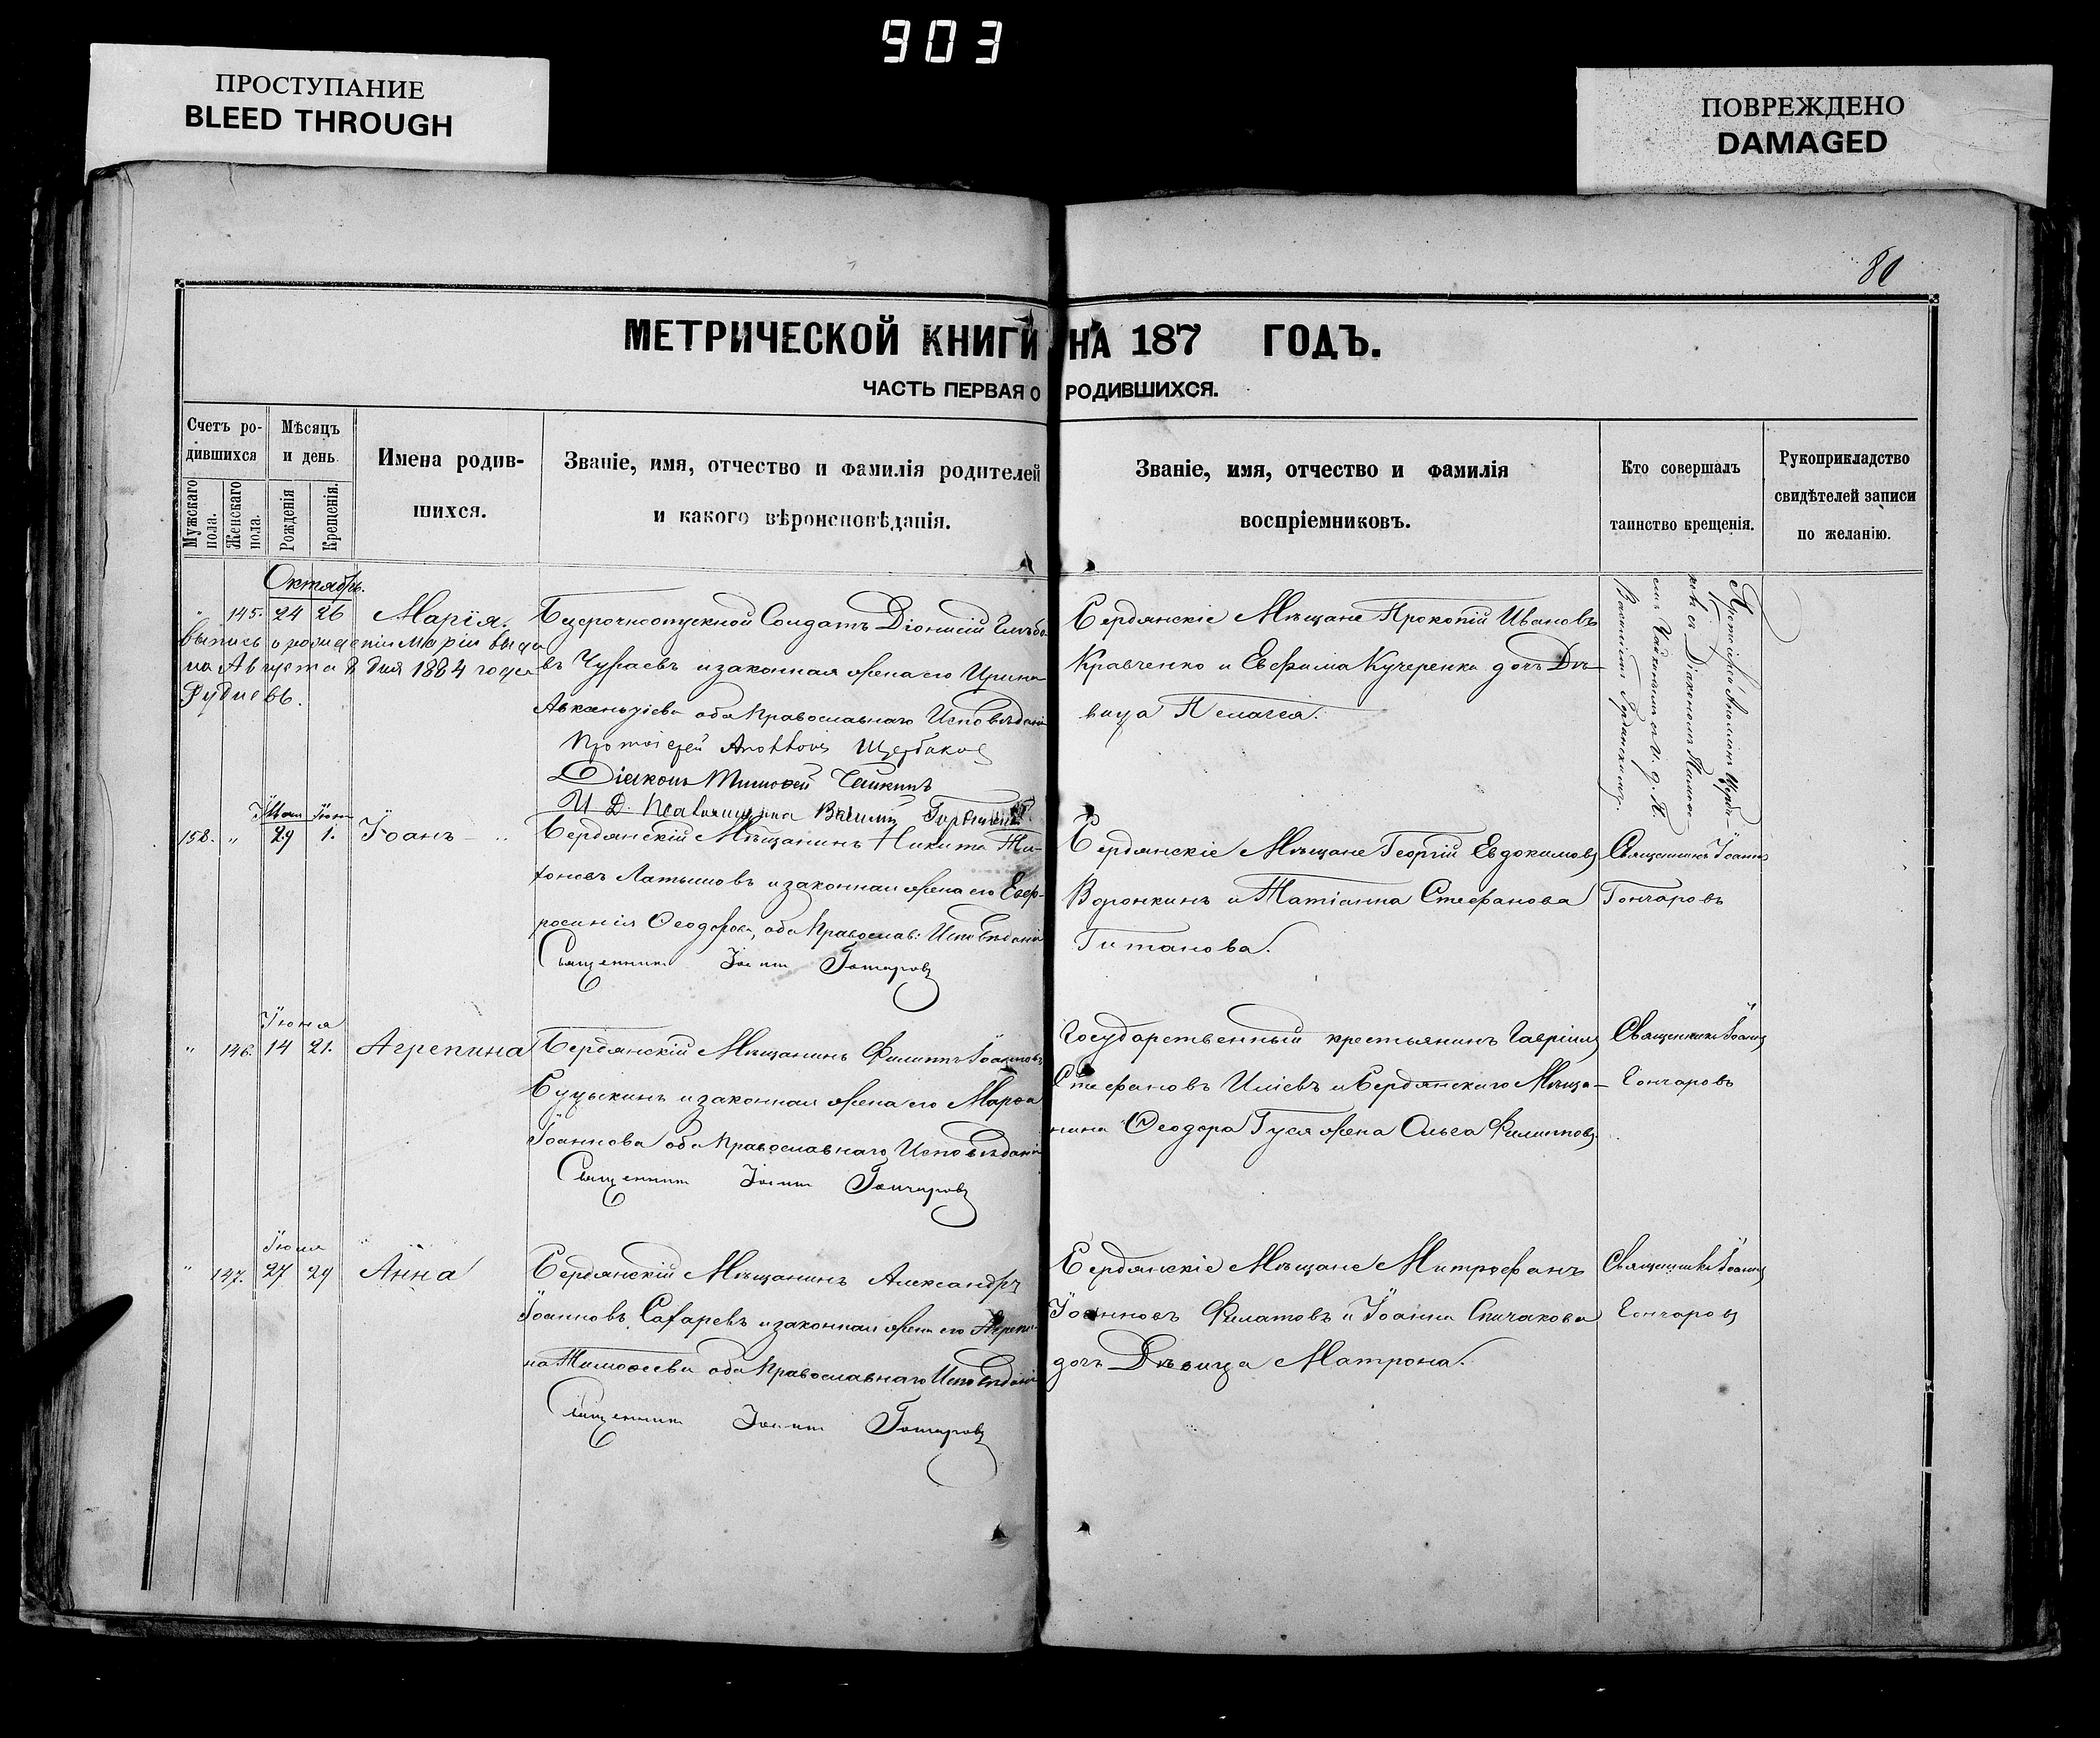 903
ПРОСТУПАНИЕ
BLEED THROUGH
ПОВРЕЖДЕНО
DAMAGED
МЕТРИЧЕСКОЙ КНИГИ НА 187 ГОДЪ.
ЧАСТЬ ПЕРВАЯ О РОДИВШИХСЯ.
Счетъ ро-
дившихся
Мужскаго пола.
Женскаго пола.
Мѣсяцъ
и день.
Рожденія
Крещенія.
Имена родив-
шихся.
Званіе, имя, отчество и фамилія родителей
и какого вѣроисповѣданія.
Званіе, имя, отчество и фамилія
воспріемниковъ.
Кто совершалъ
таинство крещенія.
Рукоприкладство
свидѣтелей записи
по желанію.
Октябрь.
" 145. 24 26 Марія.
Выпись о рожденіи Маріи выда
на Августа 8 дня 1884 года
Безсрочноотпускной Солдатъ Діонисій
въ Чураевъ и законная жена его Ирина
оба Православнаго Исповѣданія
Протоіерей Щербаковъ
Діаконъ Тимоѳей
И. Д. Псаломщика
Бердянскіе Мѣщане Прокопій Ивановъ
Кравченко и Евфима Кучеренка дочь Дѣ-
вица Пелагея.
Протоіерей Аполлонъ Щерба-
ковъ съ Діакономъ Тимоѳе-
емъ и И. д. П.
Василіемъ
Іюнь
158. " 29 1. Іоанъ
Бердянскій Мѣщанинъ Никита Ти-
хоновъ Латышовъ и законная жена его Евф-
росинія Ѳеодорова, оба Православ: Исповѣданія
Священникъ Іоаннъ Гончаровъ
Бердянскіе Мѣщане Георгій Евдокимовъ
Воронкинъ и Татіанна Стефанова
Титанова.
Священникъ Іоаннъ
Гончаровъ
Іюня
" 146. 14 21. Агрепина
Бердянскій Мѣщанинъ Филиппъ Іоанновъ
и законная жена его Марѳа
Іоаннова оба Православнаго Исповѣданія
Священникъ Іоаннъ Гончаровъ
Государственный крестьянинъ Гавріилъ
Стефановъ Иліевъ и Бердянскаго Мѣща-
нина Ѳеодора Гуся жена Ольга Филиппова.
Священникъ Іоаннъ
Гончаровъ
Іюня
" 147. 27 29 Анна
Бердянскій Мѣщанинъ Александръ
Іоанновъ и законная жена его Агрепи-
на Тимоѳеева оба Православнаго Исповѣданія
Священникъ Іоаннъ Гончаровъ
Бердянскіе Мѣщане Митрофанъ
Іоанновъ Филатовъ и Іоанна Спичакова
дочь Дѣвица Матрона.
Священникъ Іоаннъ
Гончаровъ